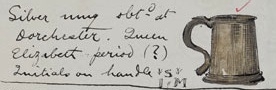 Silver mug obtd at
Dorchester. Queen
Elizabeth period (?)
Initials on handle "S"
I.M